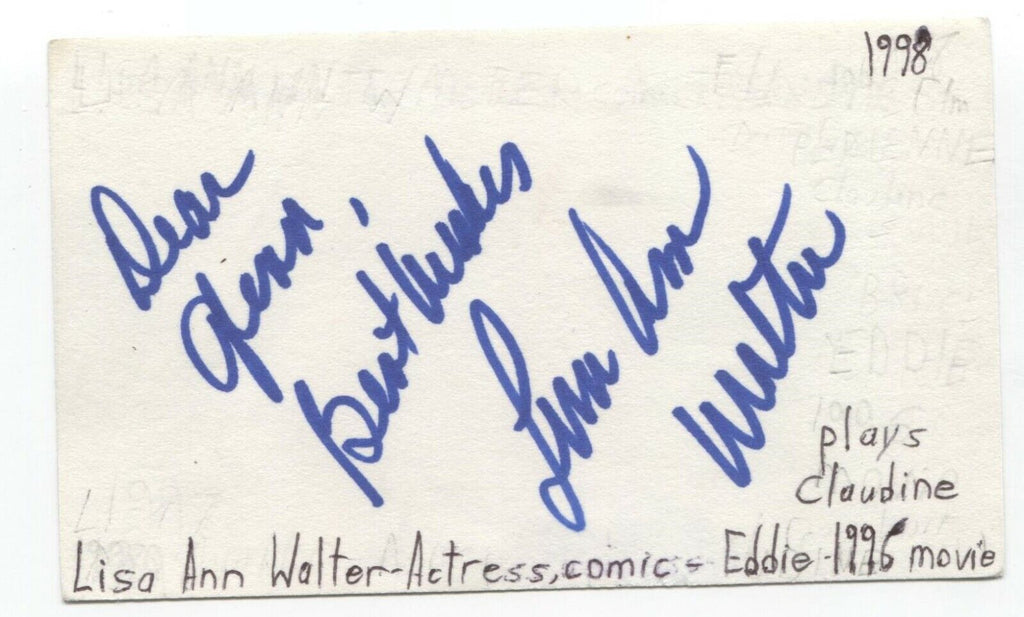 1998
Dear
Glenn,
Best Wishes
Lisa Ann
Walter
plays
Claudine
Lisa Ann Walter-Actress, comic - Eddie-1996 movie